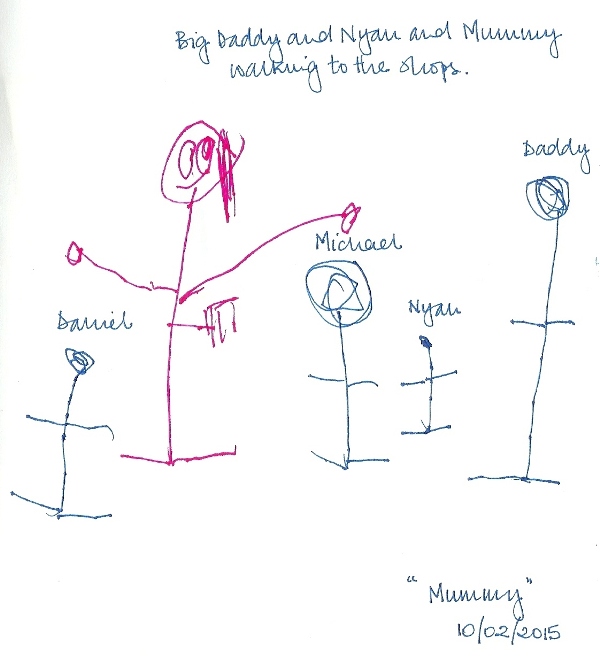 Big Daddy and Nyan and Mummy
walking to the shops.
Daddy
Michael
Nyan
Daniel
"Mummy"
10/02/2015